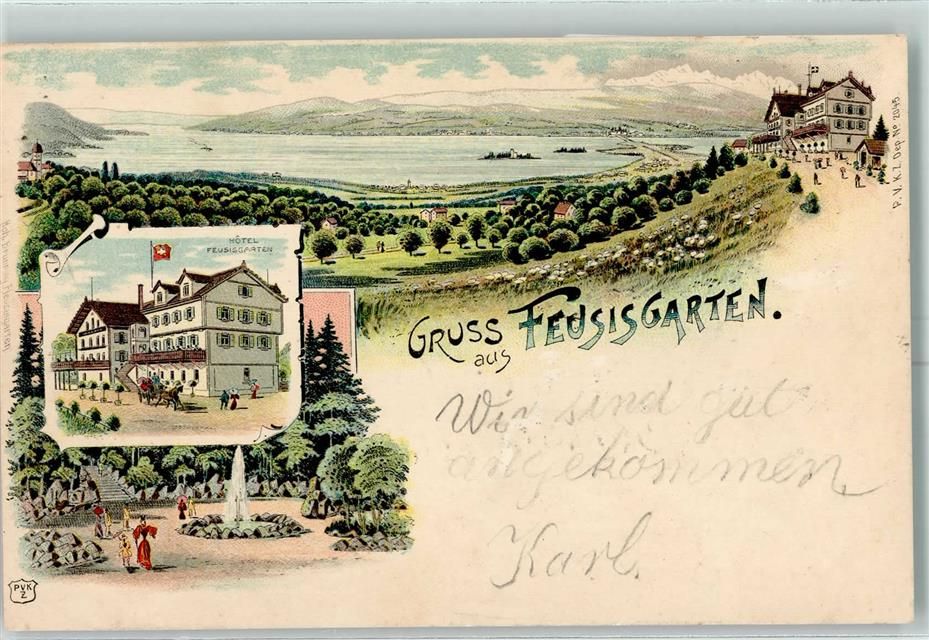 P. V. K. Z. Dep. No 2045.
HÔTEL
FEUSISGARTEN
GRUSS
aus
FEUSISGARTEN.
Wir sind gut
angekommen
Karl.
PVK
Z